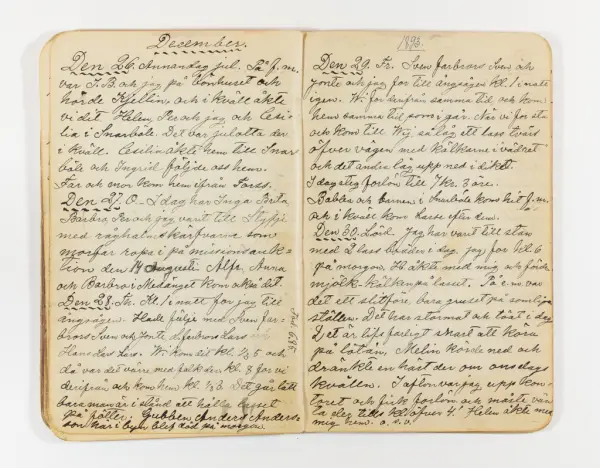 December.
Den 26. Annandag jul. På f.m.
var I.B. och jag på Bönhuset och
hörde Kjellin, och i kväll åkte
vi dit Helen, Per och jag och Ceci-
lia i Snarbäle. Det var julotta der
i kväll. Cecilia åkte hem till Snar
bäle och Ingrid följde oss hem.
Far och mor kom hem ifrån Forss.
Den 27. O. I dag har Inga Berta
Barbro, Per och jag varit till
med råghalm skärfvarna som
morfar ropa i på missionsauk-
tion den 14 Augusti. Alfr. Anna
och Barbro i Medånget kom också dit.
Den 28. To. Kl. 1 i natt for jag till
ångsågen. Hade följe med Sven far-
brors Sven och Jonte, Lars och
Hans Lars. Wi kom dit kl. ½ 5 och
då var det värre med folk der kl. 8 for vi
derifrån och kom hem kl. ½ 3. Det går lätt
bara man är i stånd att hålla lasset
på fötter. Gubben Anders Anders-
son här i byn blef död på morgon.
1893.
Den 29. Fr. Sven farbrors Sven och
Jonte och jag for till ångsågen kl. 1 i natt
igen. Wi for derifrån samma tid och kom
hem samma tid som i går. När vi for sta
och kom till Wij så låg ett lass tvärs
öfver vägen med kälkarne i vädret
och det andra låg upp ned i diket.
I dag steg förlön till 7 kr. 3 öre.
Babbes och barnen i Snarbäle kom hit f.m.
och i kväll kom Lasse efter dem.
Den 30. Lörd. Jag har vart till stan
med 2 lass bräder i dag. jag for kl. 6
på morgon. H. åkte med mig och förde
mjölkkälken på lasset. På e.m. var
det ett slitföre, bara gruset på somliga
ställen. Det har stormat och töat i dag
Det är lifsfarligt snart att köra
på Lötån, Melin körde ned och
dränkte en häst der om onsdags
kvällen. I afton var jag upp kon-
toret och fick förlön och måste vän
ta der tills kl. öfver 4. Helen åkte med
mig hem. o.s.v.